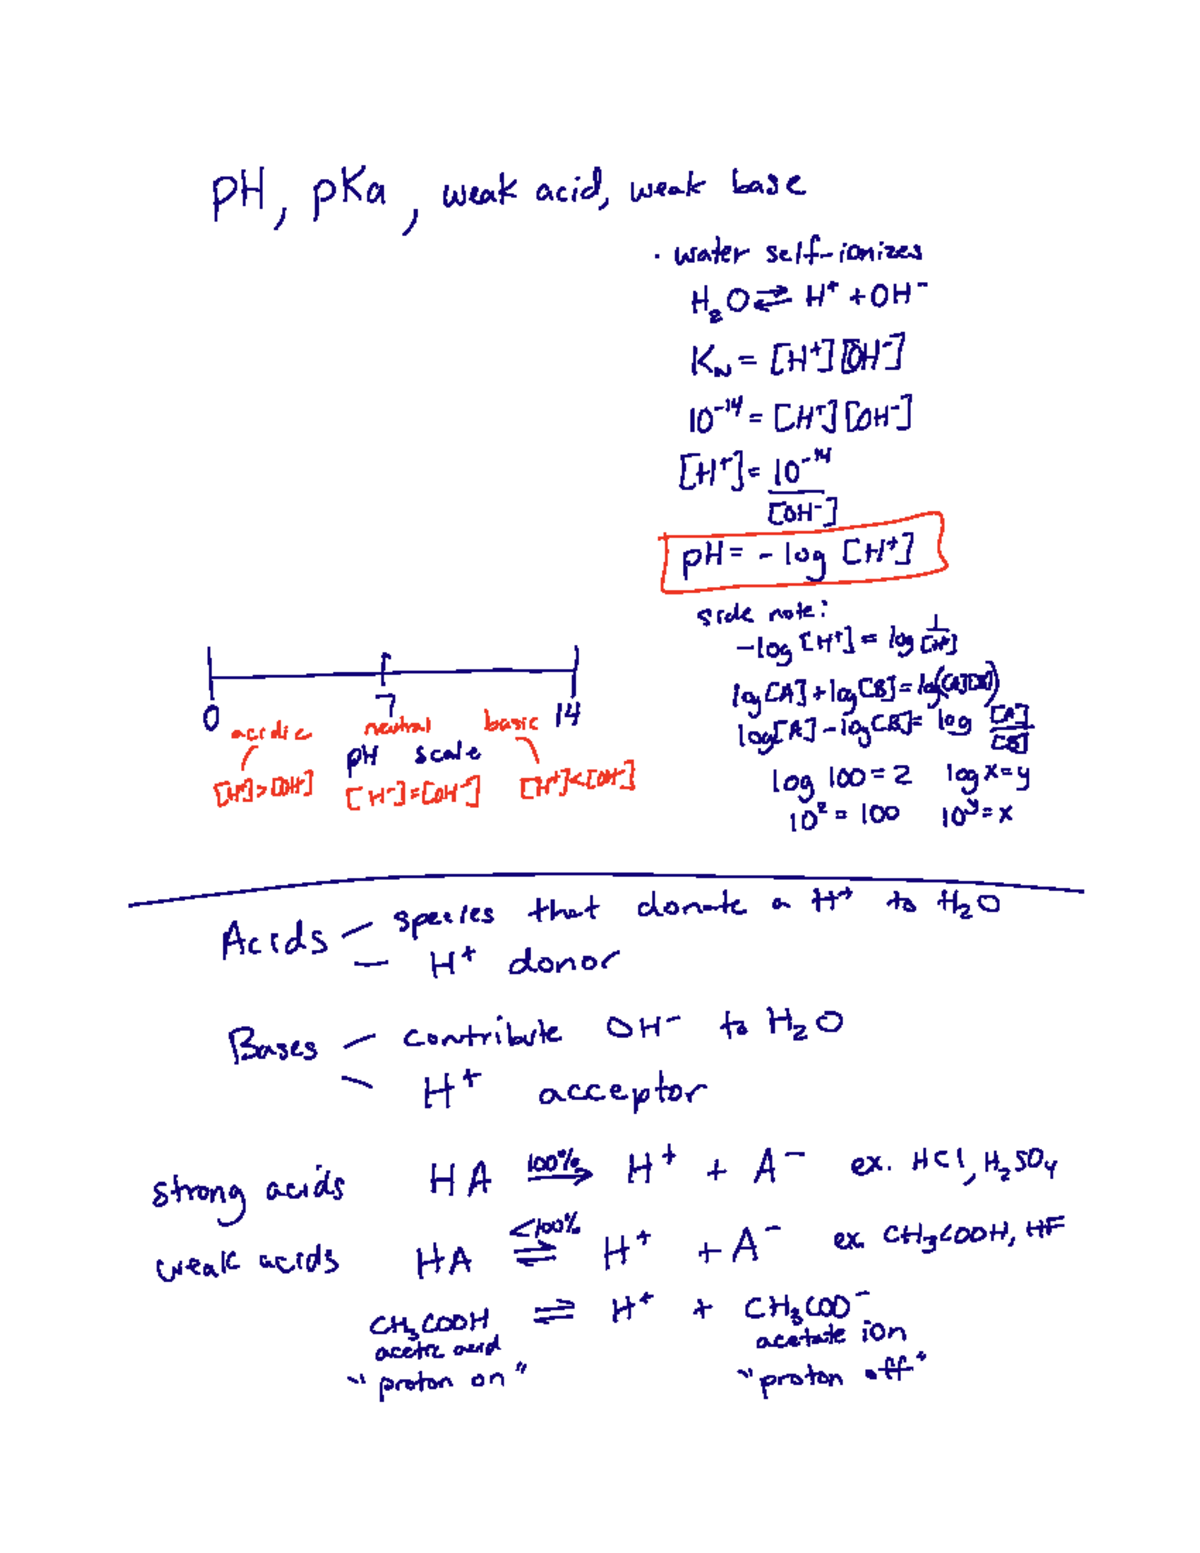 pH, pKa, weak acid, weak base
· water self-ionizes
H₂O ⇌ H⁺ + OH⁻
Kw = [H⁺][OH⁻]
10⁻¹⁴ = [H⁺][OH⁻]
[H⁺] = 10⁻¹⁴
[OH⁻]
pH = - log [H⁺]
side note:
-log [H⁺] = log 1/[H⁺]
log[A] + log[B] = log([A][B])
log[A] - log[B] = log [A]/[B]
log 100 = 2 log x = y
10² = 100 10ʸ = x
0 7 14
acidic neutral basic
pH scale
[H⁺] > [OH⁻] [H⁺] = [OH⁻] [H⁺] < [OH⁻]
Acids — species that donate a H⁺ to H₂O
— H⁺ donor
Bases — contribute OH⁻ to H₂O
— H⁺ acceptor
strong acids HA 100% → H⁺ + A⁻ ex. HCl, H₂SO₄
weak acids HA <100% ⇌ H⁺ + A⁻ ex. CH₃COOH, HF
CH₃COOH ⇌ H⁺ + CH₃COO⁻
acetic acid acetate ion
"proton on" "proton off"